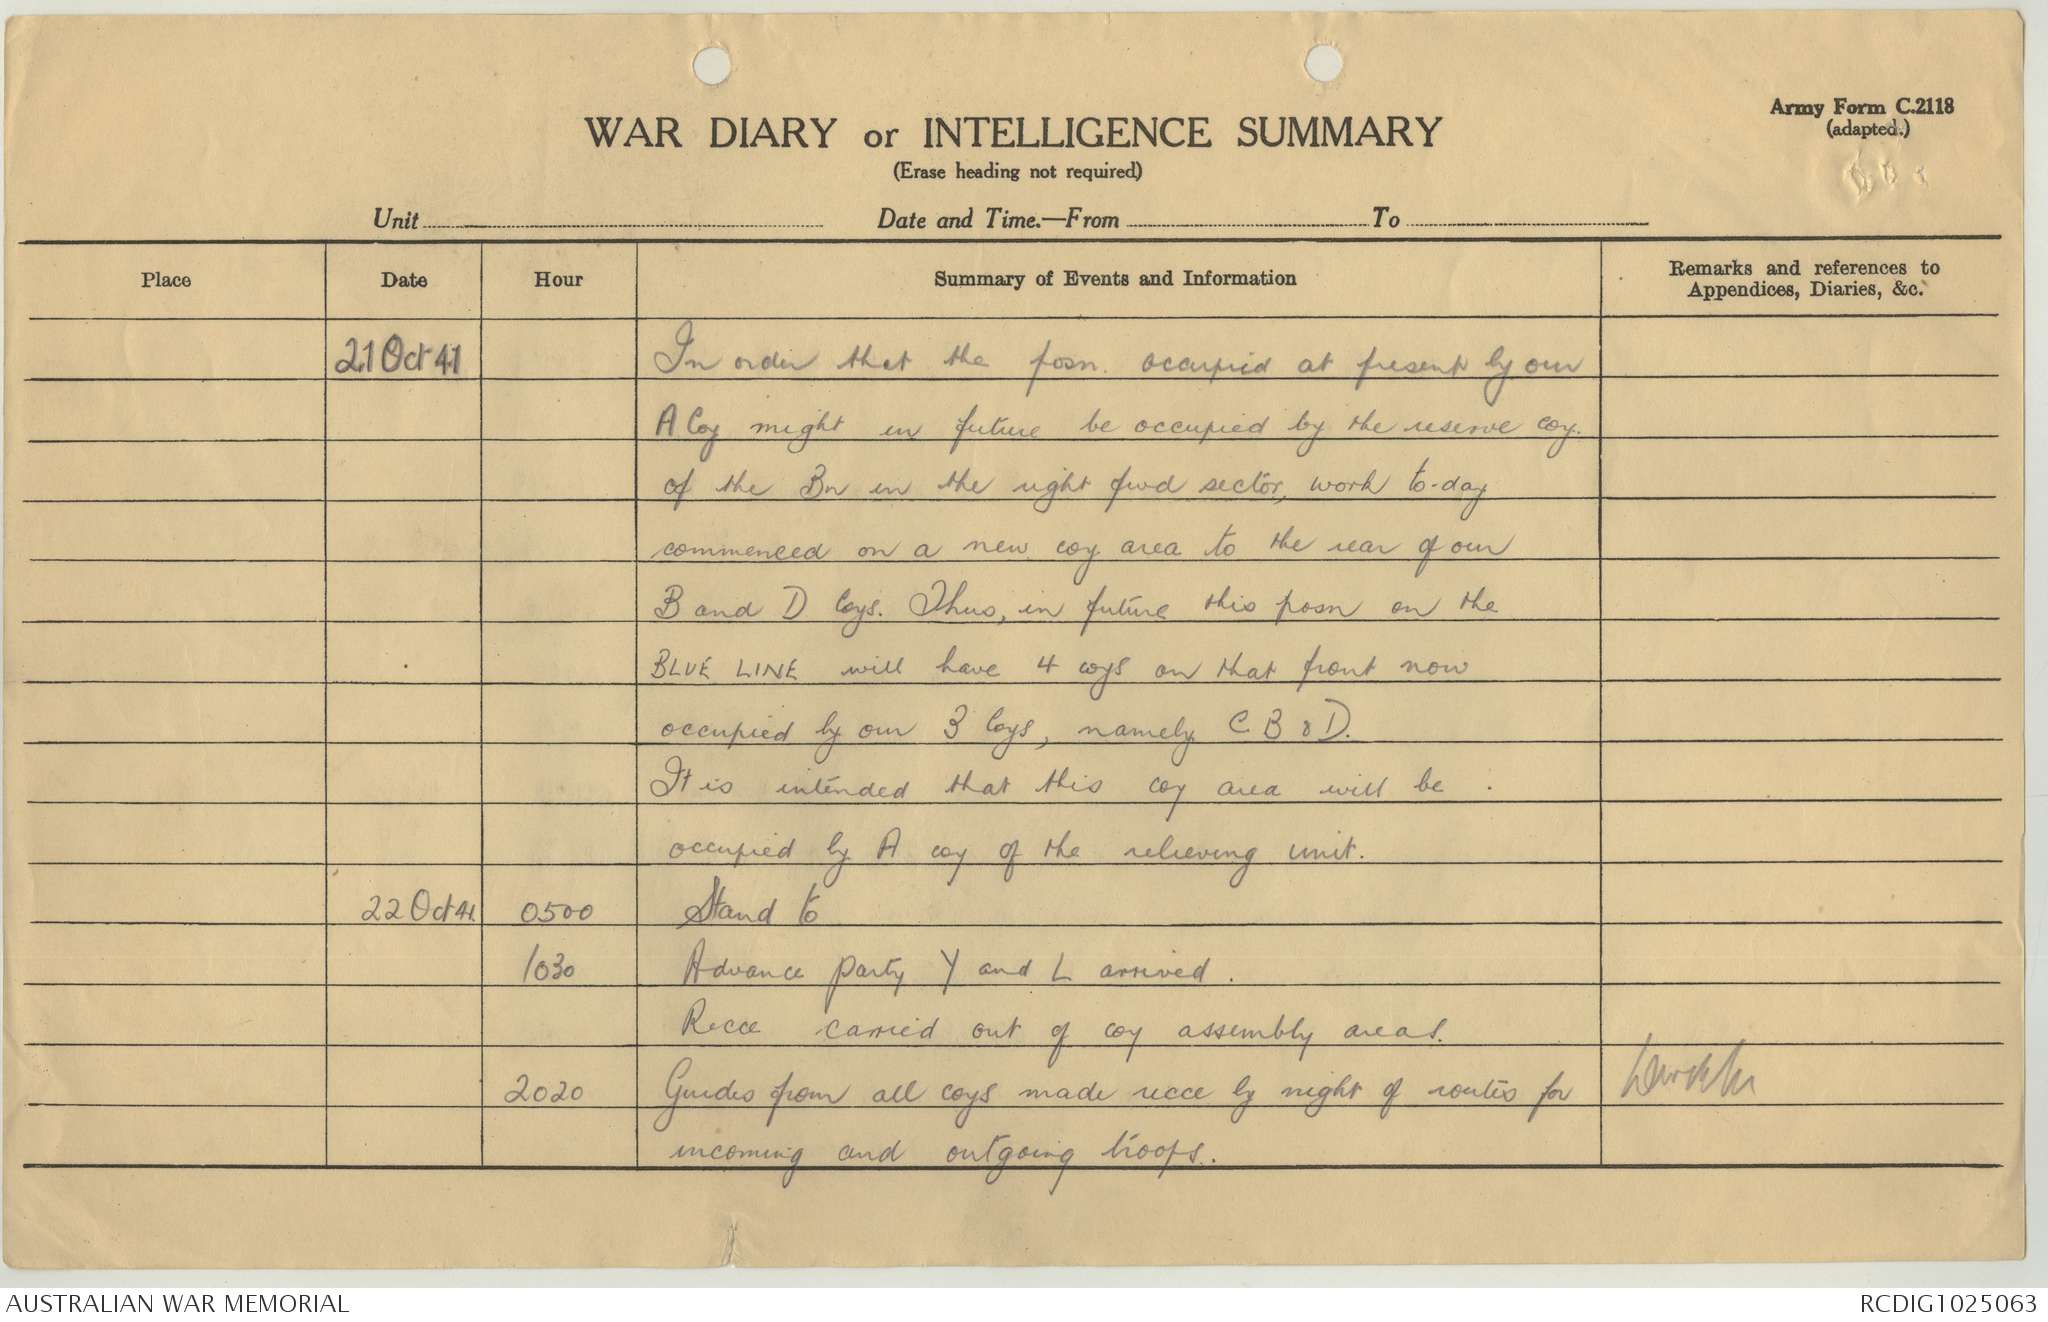 Army Form C.2118
(adapted.)
WAR DIARY or INTELLIGENCE SUMMARY
(Erase heading not required)
Unit
Date and Time.—From
To
Place
Date
Hour
Summary of Events and Information
Remarks and references to
Appendices, Diaries, &c.
21 Oct 41
In order that the posn. occupied at present by our
A Coy might in future be occupied by the reserve coy.
of the Bn in the right fwd sector, work to-day
commenced on a new coy area to the rear of our
B and D Coys. Thus, in future this posn on the
BLUE LINE will have 4 coys on that front now
occupied by our 3 Coys, namely C B & D.
It is intended that this coy area will be
occupied by A coy of the relieving unit.
22 Oct 41 0500 Stand to
1030 Advance party Y and L arrived.
Recce carried out of coy assembly areas.
2020 Guides from all coys made recce by night of routes for
incoming and outgoing troops.
AUSTRALIAN WAR MEMORIAL
RCDIG1025063